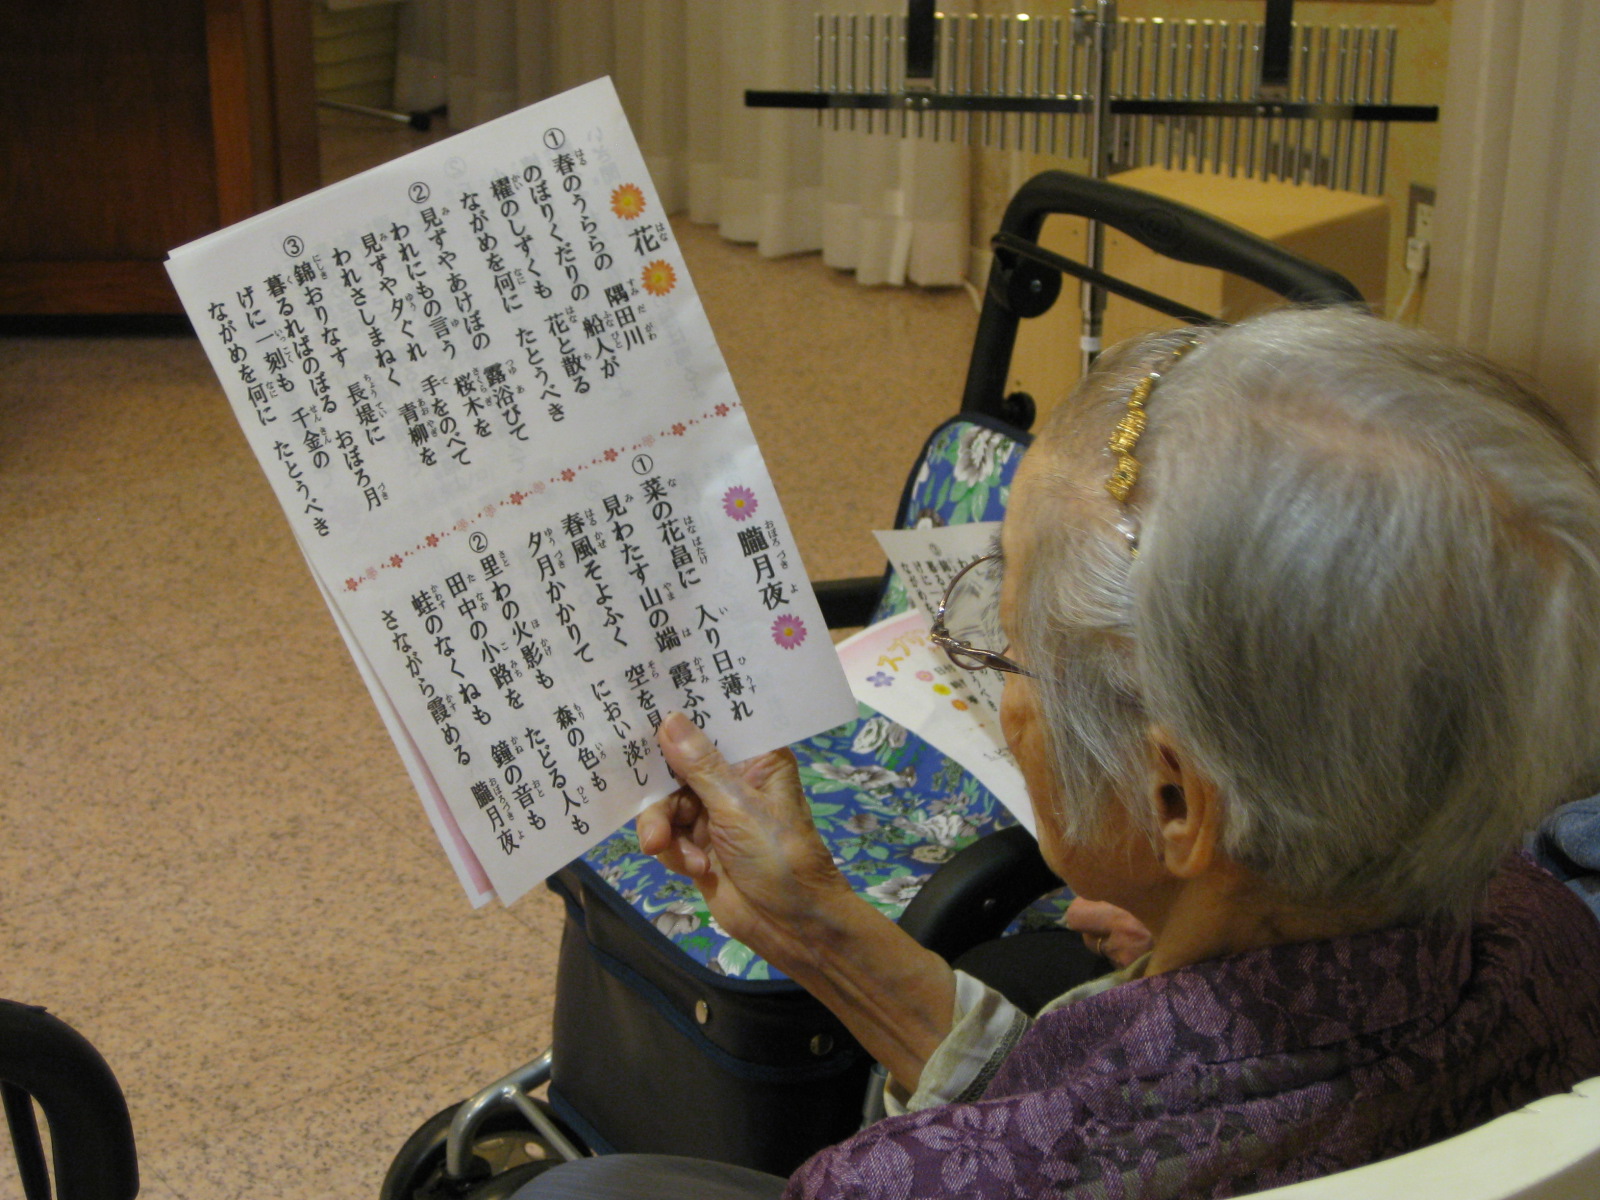 花
① 春のうららの 隅田川
のぼりくだりの 船人が
櫂のしずくも 花と散る
ながめを何に たとうべき
② 見ずやあけぼの 露浴びて
われにもの言う 桜木を
見ずや夕ぐれ 手をのべて
われさしまねく 青柳を
③ 錦おりなす 長堤に
暮るればのぼる おぼろ月
げに一刻も 千金の
ながめを何に たとうべき
朧月夜
① 菜の花畠に 入り日薄れ
見わたす山の端 霞ふか
春風そよふく 空を見
夕月かかりて におい淡し
② 里わの火影も 森の色も
田中の小路を たどる人も
蛙のなくねも 鐘の音も
さながら霞める 朧月夜